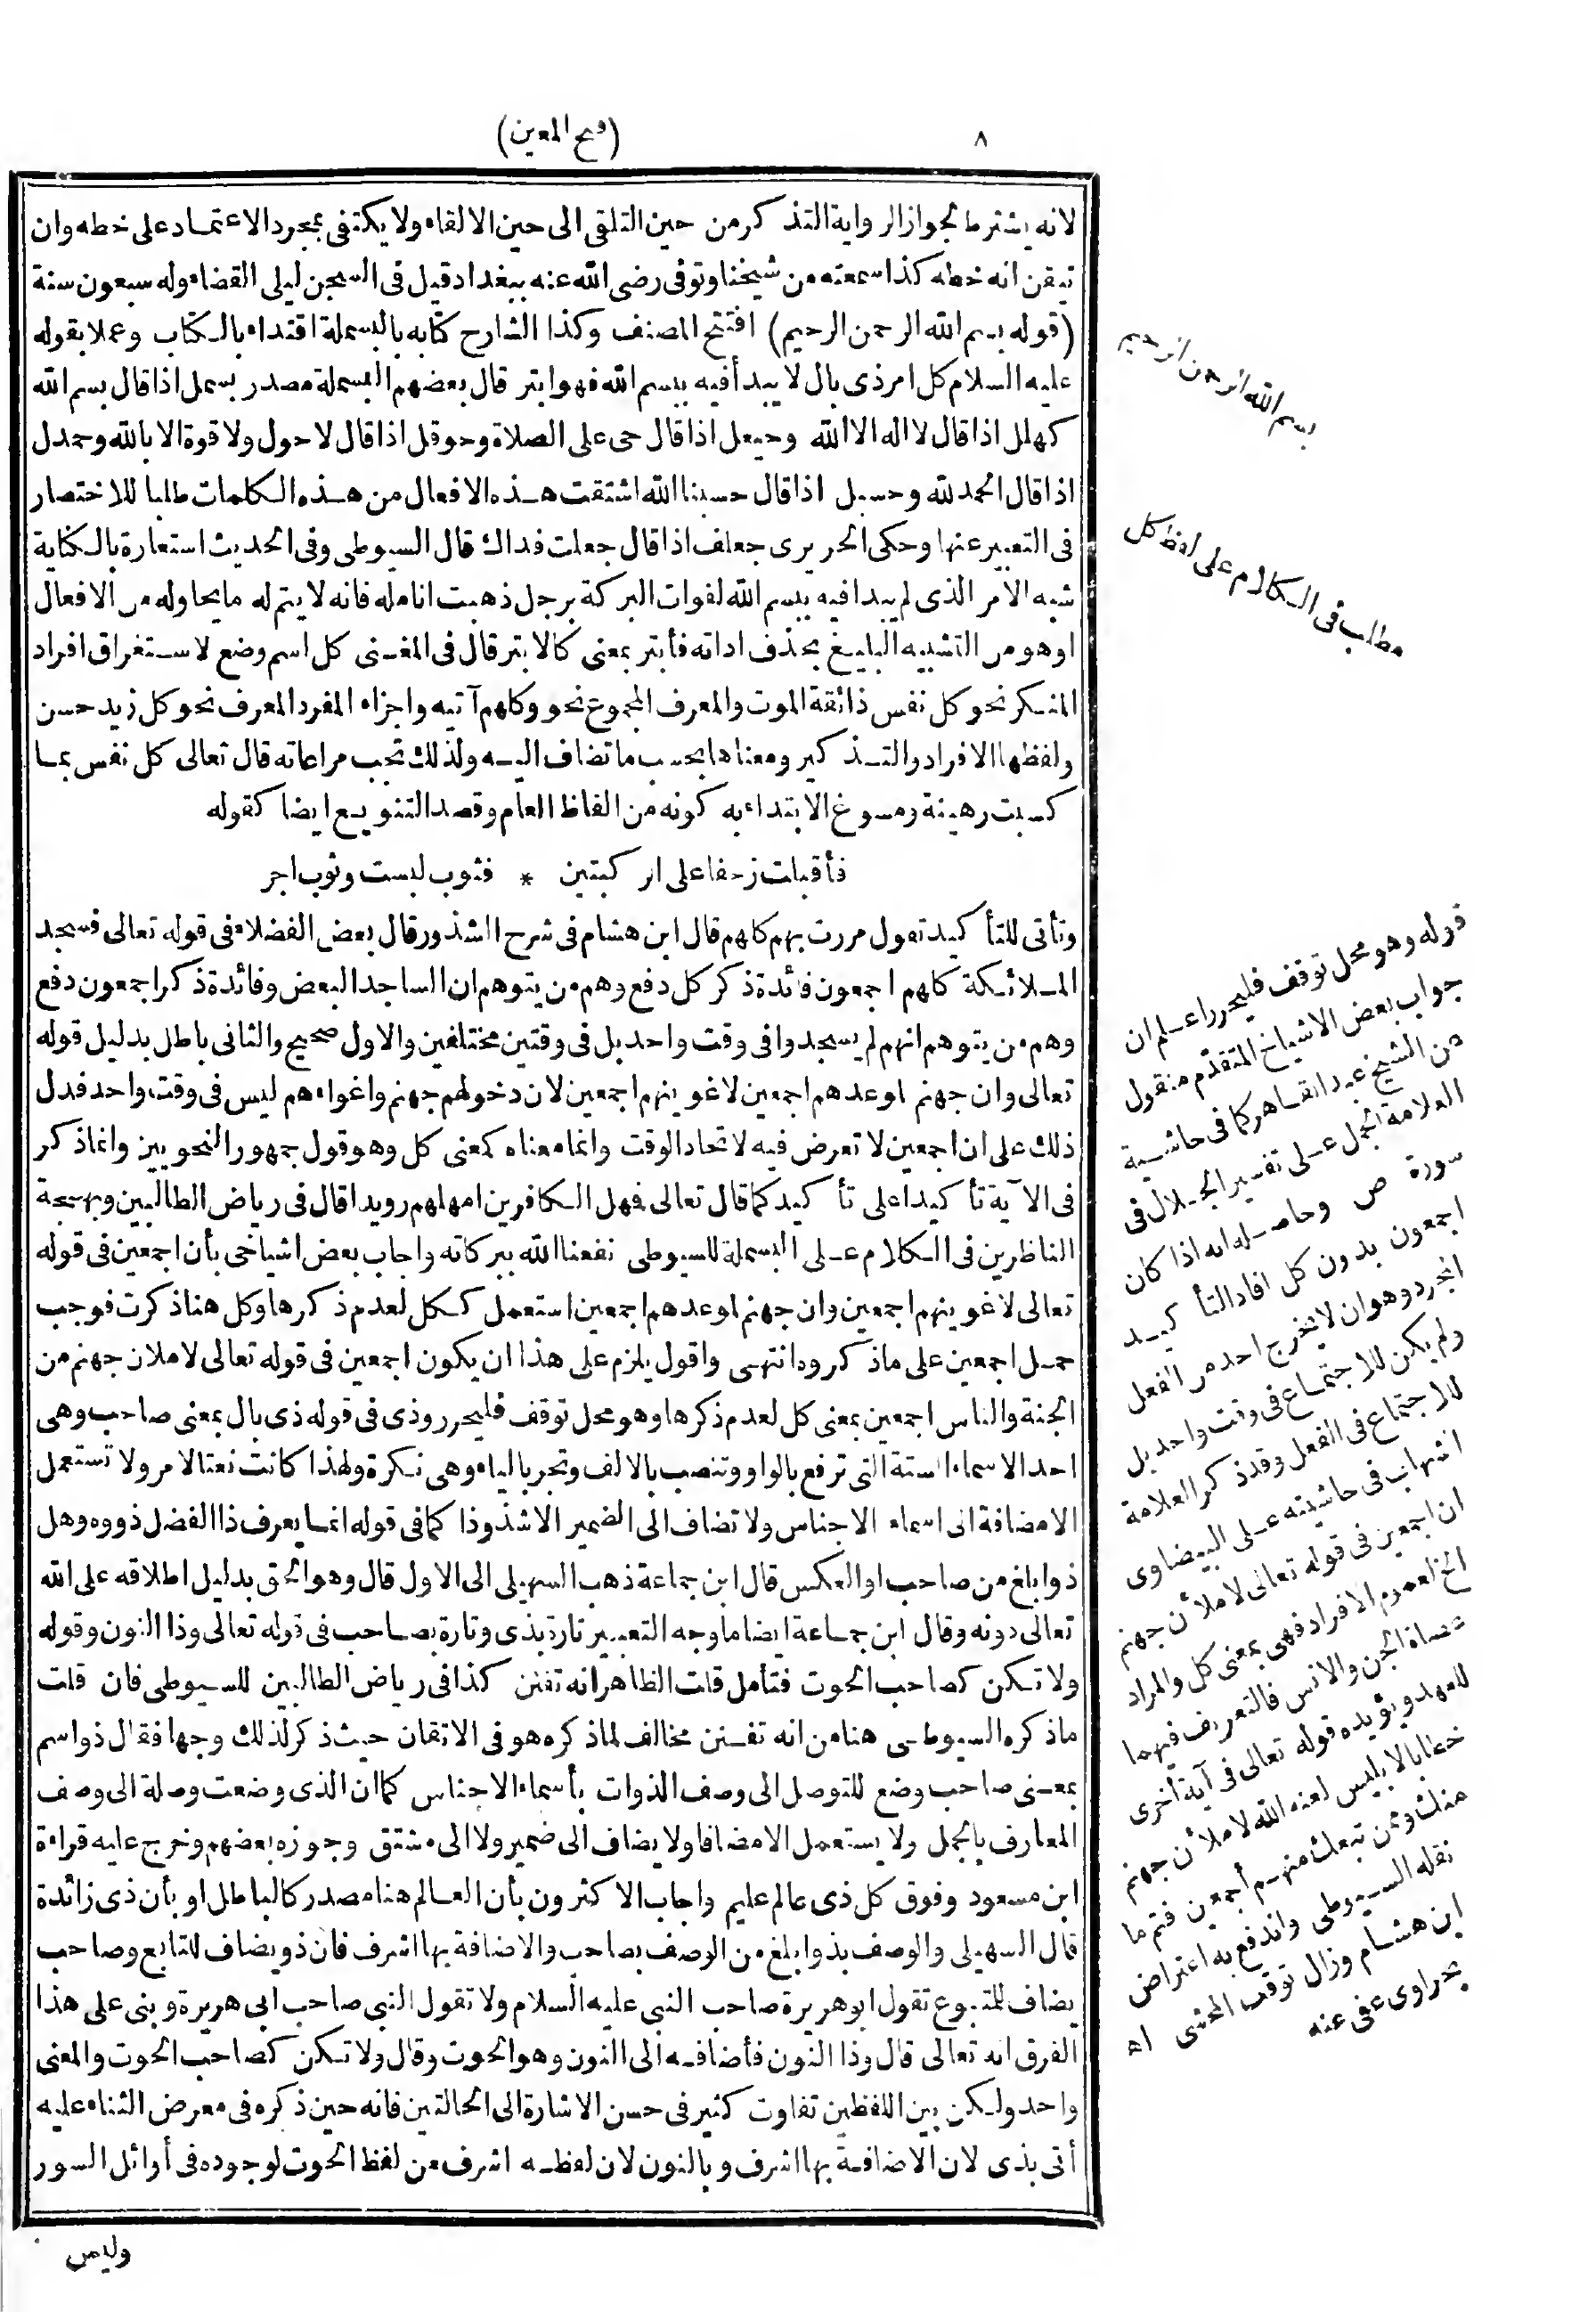 ٨
(فتح المعين)
لانه يشترط لجواز الرواية التذكر من حين التلقى الى حين الالقاء ولا يكتفى بمجرد الاعتماد على خطه وان
تيقن انه خطه كذا سمعته من شيخنا وتوفى رضى الله عنه ببغداد قيل فى السجن ليلى القضاء وله سبعون سنة
(قوله بسم الله الرحمن الرحيم) افتتح المصنف وكذا الشارح كتابه بالبسملة اقتداء بالكتاب وعملا بقوله
عليه السلام كل امر ذى بال لا يبدأ فيه ببسم الله فهو ابتر قال بعضهم البسملة مصدر بسمل اذا قال بسم الله
كهلل اذا قال لا اله الا الله وحيعل اذا قال حى على الصلاة وحوقل اذا قال لا حول ولا قوة الا بالله وحمدل
اذا قال الحمد لله وحسبل اذا قال حسبنا الله اشتقت هذه الافعال من هذه الكلمات طلبا للاختصار
فى التعبير عنها وحكى الحريرى جعلف اذا قال جعلت فداك قال السيوطى وفى الحديث استعارة بالكناية
شبه الامر الذى لم يبدا فيه ببسم الله لفوات البركة برجل ذهبت انامله فانه لا يتم له ما يحاوله من الافعال
او هو من التشبيه البليغ بحذف اداته فأبتر بمعنى كالابتر قال فى المغنى كل اسم وضع لاستغراق افراد
المنكر نحو كل نفس ذائقة الموت والمعرف المجموع نحو وكلهم آتيه واجزاء المفرد المعرف نحو كل زيد حسن
ولفظها الافراد والتذكير ومعناها بحسب ما تضاف اليه ولذلك تجب مراعاته قال تعالى كل نفس بما
كسبت رهينة ومسوغ الابتداء به كونه من الفاظ العام وقصد التنويع ايضا كقوله
فأقبلت زحفا على الركبتين * فثوب لبست وثوب اجر
وتأتى للتأكيد تقول مررت بهم كلهم قال ابن هشام فى شرح الشذور قال بعض الفضلاء فى قوله تعالى فسجد
الملائكة كلهم اجمعون فائدة ذكر كل دفع وهم من يتوهم ان الساجد البعض وفائدة ذكر اجمعون دفع
وهم من يتوهم انهم لم يسجدوا فى وقت واحد بل فى وقتين مختلفين والاول صحيح والثانى باطل بدليل قوله
تعالى وان جهنم لموعدهم اجمعين لاغوينهم اجمعين لان دخولهم جهنم واغواءهم ليس فى وقت واحد فدل
ذلك على ان اجمعين لا تعرض فيه لاتحاد الوقت وانما معناه كمعنى كل وهو قول جمهور النحويين وانما ذكر
فى الآية تأكيدا على تأكيد كما قال تعالى فمهل الكافرين امهلهم رويدا قال فى رياض الطالبين وبهجة
الناظرين فى الكلام على البسملة للسيوطى نفعنا الله ببركاته واجاب بعض اشياخى بأن اجمعين فى قوله
تعالى لاغوينهم اجمعين وان جهنم لموعدهم اجمعين استعمل ككل لعدم ذكرها وكل هنا ذكرت فوجب
حمل اجمعين على ما ذكروه انتهى واقول يلزم على هذا ان يكون اجمعين فى قوله تعالى لاملان جهنم من
الجنة والناس اجمعين بمعنى كل لعدم ذكرها وهو محل توقف فليحرر وذى فى قوله ذى بال بمعنى صاحب وهى
احد الاسماء الستة التى ترفع بالواو وتنصب بالالف وتجر بالياء وهى نكرة ولهذا كانت نعتا لامر ولا تستعمل
الا مضافة الى اسماء الاجناس ولا تضاف الى الضمير الا شذوذا كما فى قوله انما يعرف ذا الفضل ذووه وهل
ذو ابلغ من صاحب او العكس قال ابن جماعة ذهب السهيلى الى الاول قال وهو الحق بدليل اطلاقه على الله
تعالى دونه وقال ابن جماعة ايضا ما وجه التعبير تارة بذى وتارة بصاحب فى قوله تعالى وذا النون وقوله
ولا تكن كصاحب الحوت فتأمل قلت الظاهر انه تفنن كذا فى رياض الطالبين للسيوطى فان قلت
ما ذكره السيوطى هنا من انه تفنن مخالف لما ذكره هو فى الاتقان حيث ذكر لذلك وجها فقال ذو اسم
بمعنى صاحب وضع للتوصل الى وصف الذوات بأسماء الاجناس كما ان الذى وضعت وصلة الى وصف
المعارف بالجمل ولا يستعمل الا مضافا ولا يضاف الى ضمير ولا الى مشتق وجوزه بعضهم وخرج عليه قراءة
ابن مسعود وفوق كل ذى عالم عليم واجاب الاكثرون بأن العالم هنا مصدر كالباطل او بأن ذى زائدة
قال السهيلى والوصف بذو ابلغ من الوصف بصاحب والاضافة بها اشرف فان ذو يضاف للتابع وصاحب
يضاف للمتبوع تقول ابو هريرة صاحب النبى عليه السلام ولا تقول النبى صاحب ابى هريرة وبنى على هذا
الفرق انه تعالى قال وذا النون فأضافه الى النون وهو الحوت وقال ولا تكن كصاحب الحوت والمعنى
واحد ولكن بين اللفظين تفاوت كثير فى حسن الاشارة الى الحالتين فانه حين ذكره فى معرض الثناء عليه
أتى بذى لان الاضافة بها اشرف وبالنون لان لفظه اشرف من لفظ الحوت لوجوده فى أوائل السور
وليس
بسم الله الرحمن الرحيم
مطلب فى الكلام على لفظ كل
قوله وهو محل توقف فليحرر اعلم ان
جواب بعض الاشياخ المتقدم منقول
من الشيخ عبد القاهر كما فى حاشية
العلامة الجمل على تفسير الجلال فى
سورة ص وحاصله انه اذا كان
اجمعون بدون كل افاد التأكيد
المجرد وهو ان لا يخرج احد من الفعل
ولم يكن للاجتماع فى وقت واحد بل
للاجتماع فى الفعل وقد ذكر العلامة
الشهاب فى حاشيته على البيضاوى
ان اجمعين فى قوله تعالى لاملأن جهنم
الخ لعموم الافراد فهى بمعنى كل والمراد
عصاة الجن والانس فالتعريف فيهما
للعهد ويؤيده قوله تعالى فى آية اخرى
خطابا لابليس لعنه الله لاملأن جهنم
منك وممن تبعك منهم أجمعين فتم ما
نقله السيوطى واندفع به اعتراض
ابن هشام وزال توقف المحشى اه
بحراوى عفى عنه